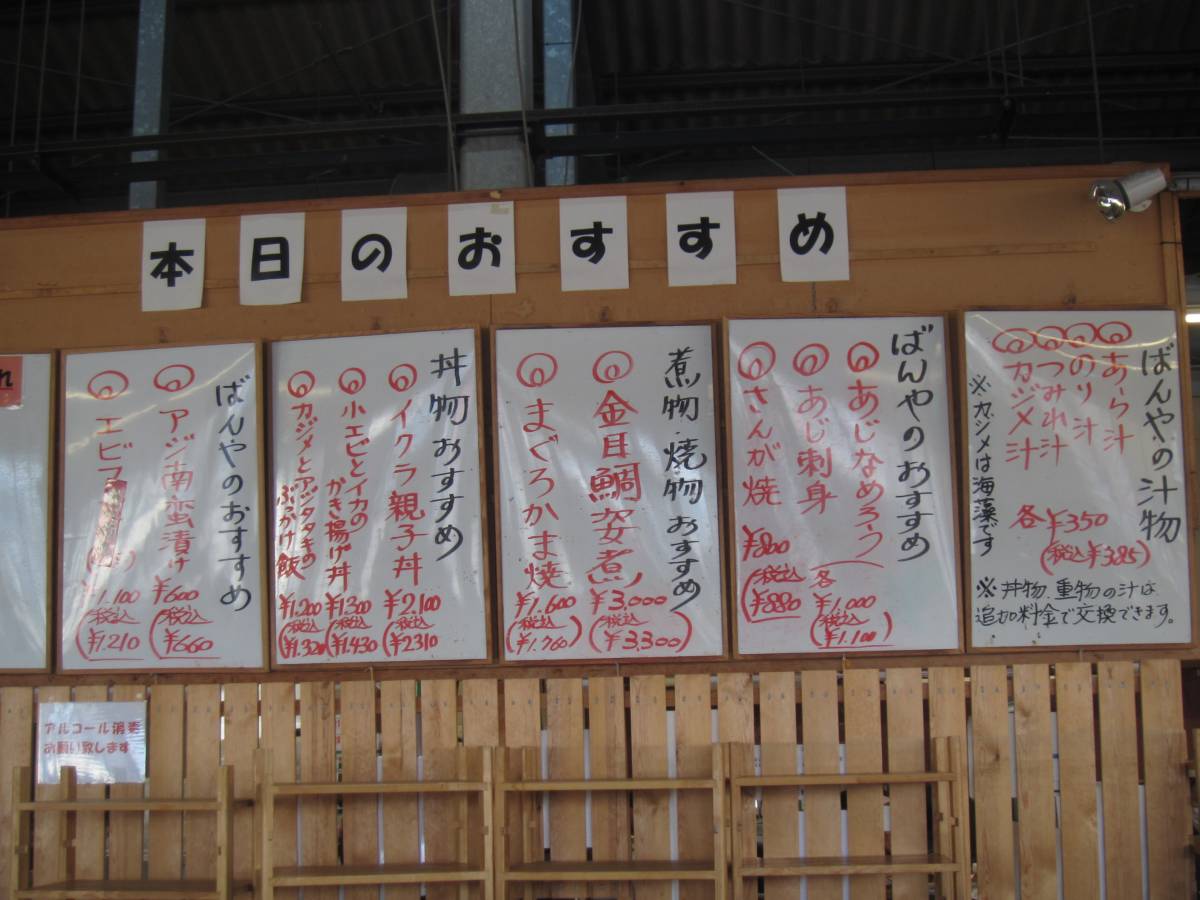 本日のおすすめ
ばんやの汁物
あら汁
のり汁
つみれ汁
カジメ汁
各¥350
(税込¥385)
※カジメは海藻です
※丼物、重物の汁は
追加料金で交換できます。
ばんやのおすすめ
あじなめろう
あじ刺身
各¥1,000
(税込¥1,100)
さんが焼
¥800
(税込¥880)
煮物・焼物 おすすめ
金目鯛姿煮
¥3,000
(税込¥3,300)
まぐろかま焼
¥1,600
(税込¥1,760)
丼物おすすめ
イクラ親子丼
¥2,100
(税込¥2310)
小エビとイカの
かき揚げ丼
¥1,300
(税込¥1,430)
カジメとアジタタキの
ぶっかけ飯
¥1,200
(税込¥1,320)
ばんやのおすすめ
アジ南蛮漬け
¥600
(税込¥660)
エビフ
¥1,100
(税込¥1,210)
れ
アルコール消毒
お願い致します